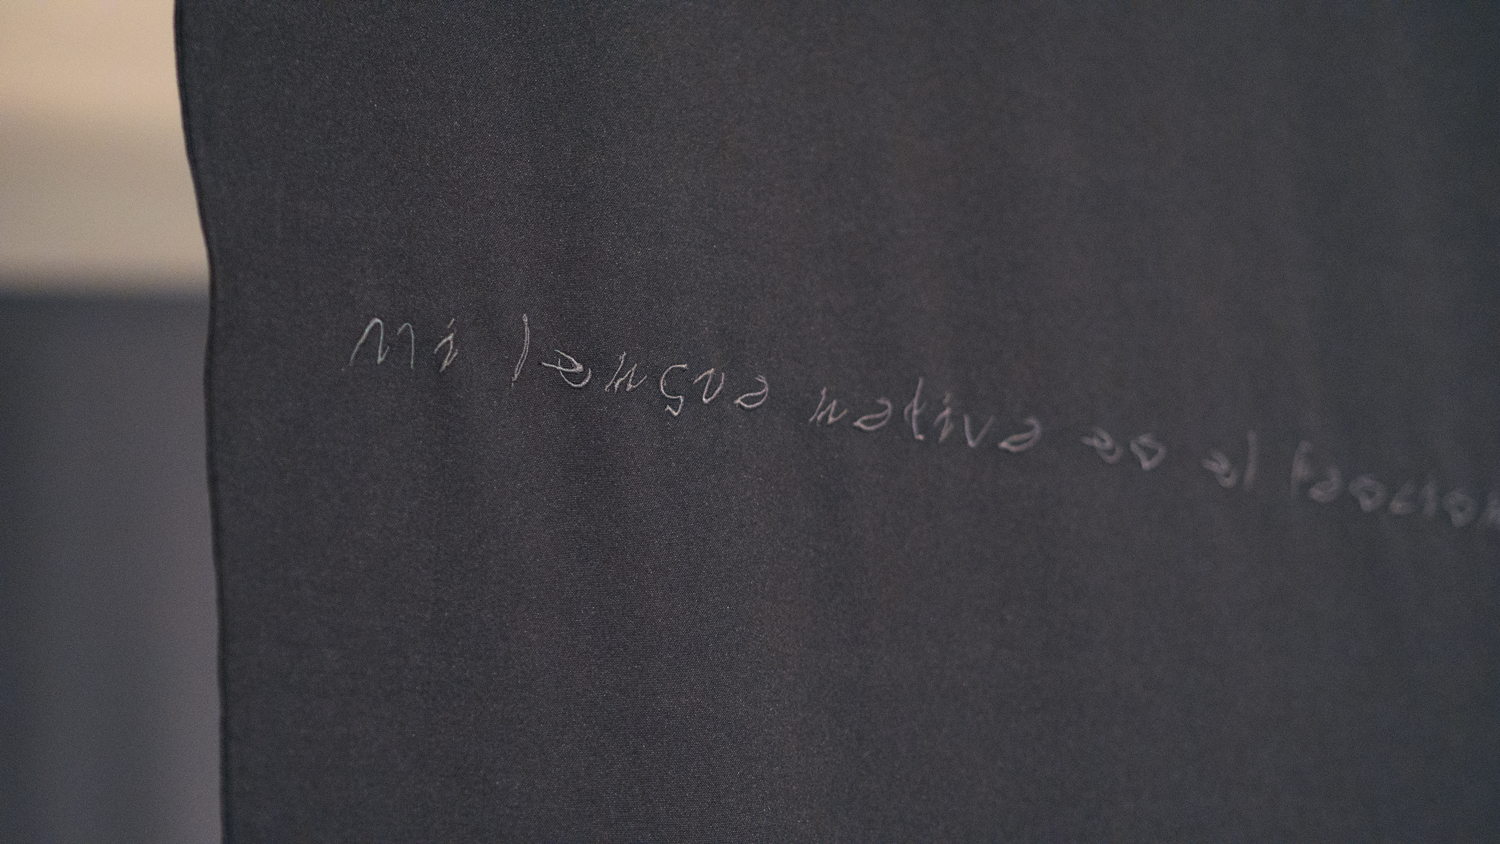 Mi lengua nativa es el